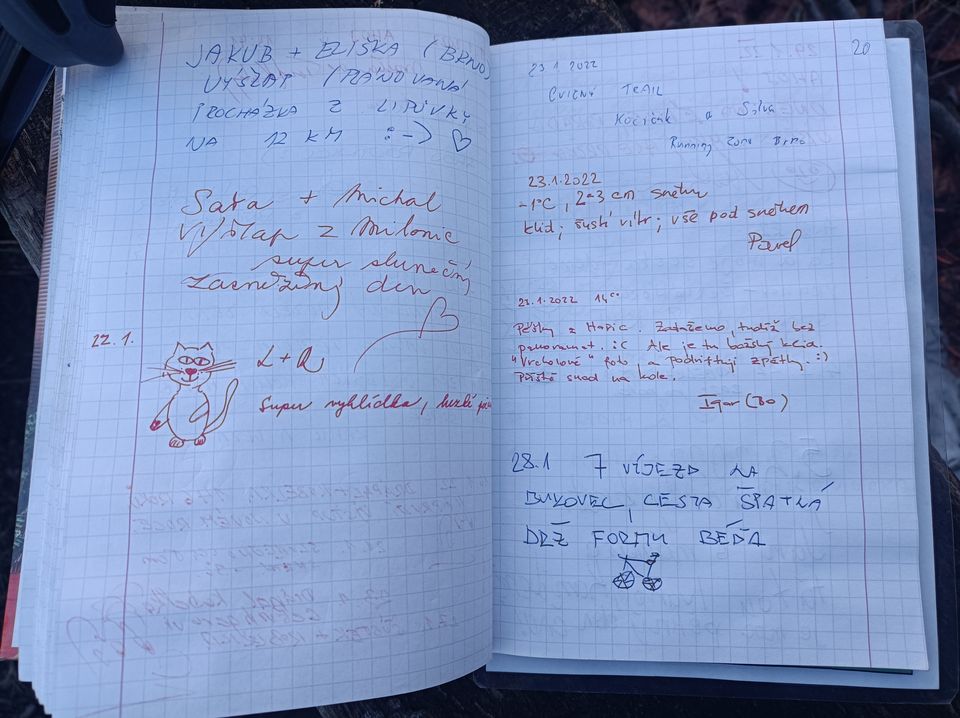 JAKUB + ELIŠKA (BRNO)
VÝŠLAP / PLÁNOVANÁ
PROCHÁZKA Z LIPŮVKY
NA 12 KM :-) ♡
Sára + Michal
Výšlap z Milonic
super slunečný
zasněžený den
22.1.
L + R
Super vyhlídka, hezké
20
23 1 2022
CVIČNÝ TRAIL
Kočičák a Sylva
Running Zone Brno
23.1.2022
-1°C, 2-3 cm sněhu
klid; šustí vítr; vše pod sněhem
Pavel
23.1.2022 14°°
Pěšky z Hořic. Zataženo, tudíž bez
panoramat. :( Ale je tu božský klid.
"Vrcholové" foto a podriftuji zpátky. :)
Příště snad na kole.
Igor (BO)
28.1 7 VÍJEZD NA
BUKOVEC, CESTA ŠPATNÁ
DRŽ FORMU BÉĎA